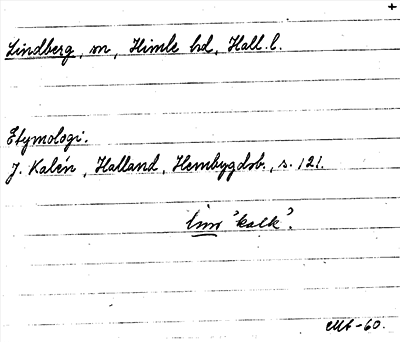 +
Lindberg, sn, Himle hd, Hall. l.
Etymologi:
J. Kalén, Halland, Hembygdsb., s. 121.
lim 'kalk'.
-60.